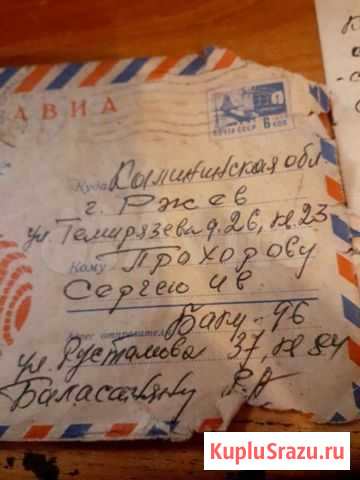 АВИА
ПОЧТА СССР 6 КОП
Куда Калининская обл
г. Ржев
ул. Тимирязева д. 26, кв. 23
Кому Прохорову
Сергею Ив
Адрес отправителя Баку-96
ул. Рустамова 37, кв 84
Баласаняну Р.А
KupluSrazu.ru